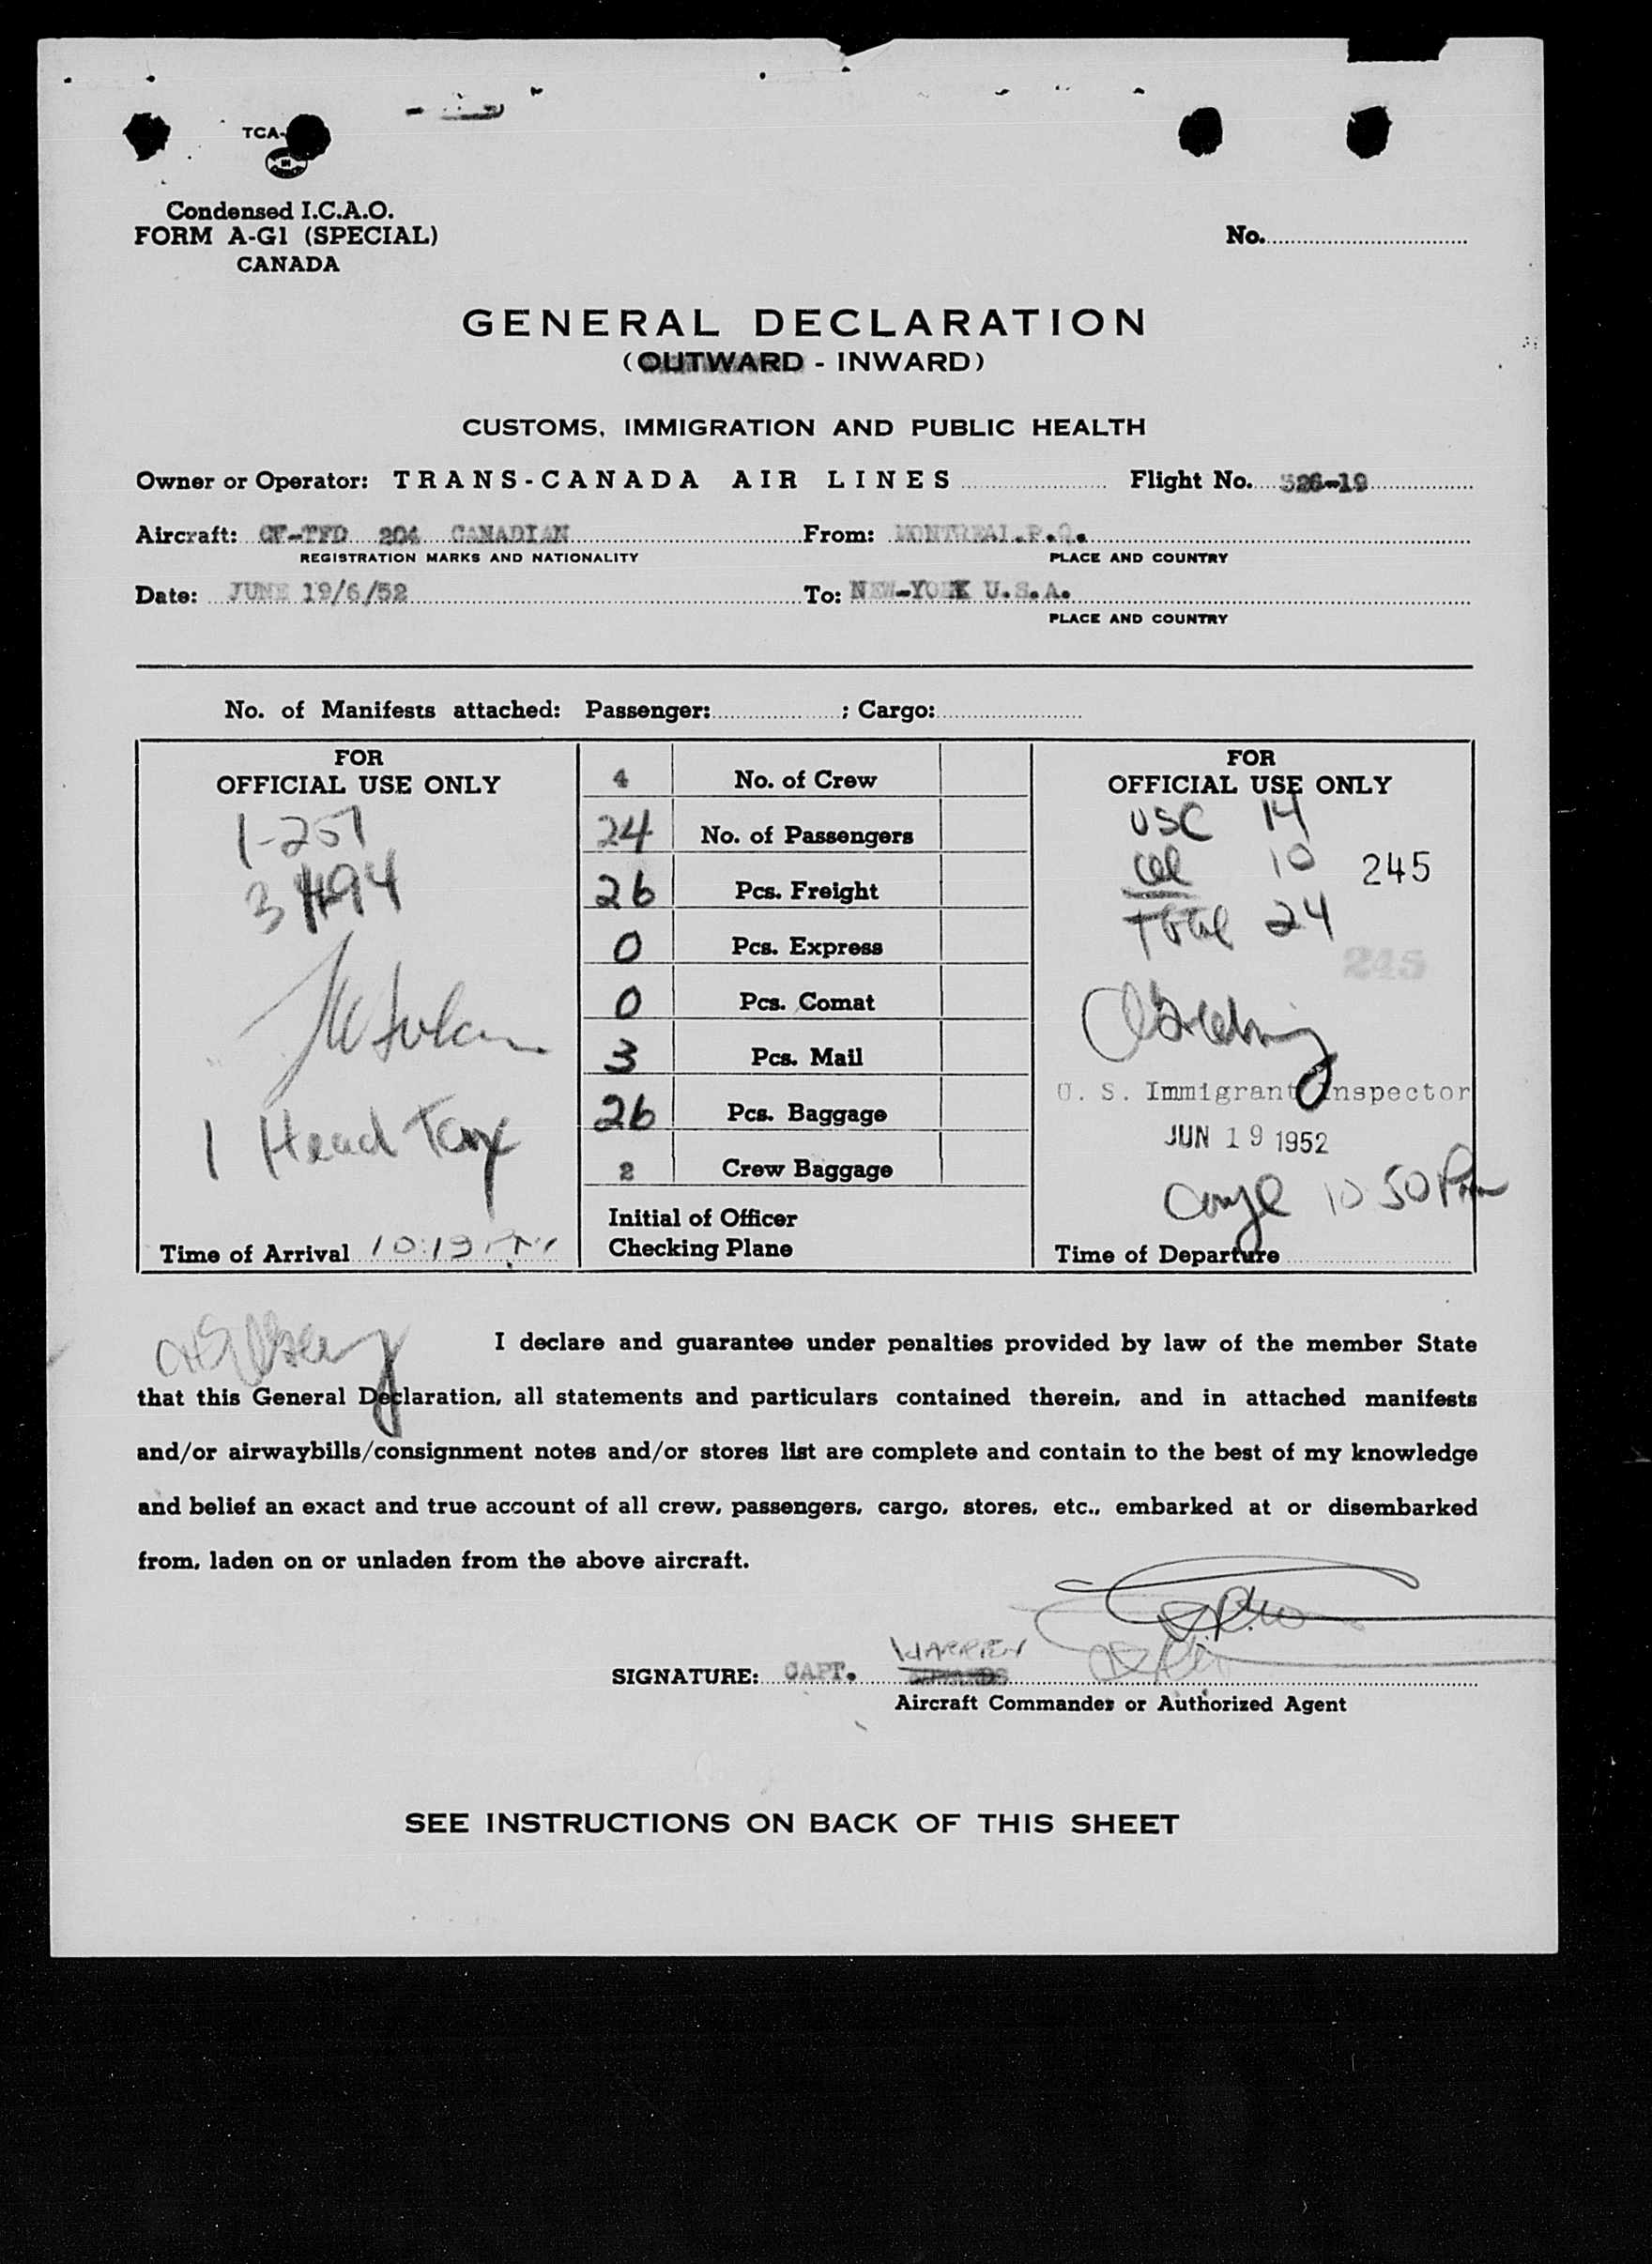 TCA-
Condensed I.C.A.O.
FORM A-G1 (SPECIAL)
CANADA
No.
GENERAL DECLARATION
(OUTWARD - INWARD)
CUSTOMS, IMMIGRATION AND PUBLIC HEALTH
Owner or Operator: TRANS-CANADA AIR LINES Flight No. 526-19
Aircraft: CF-TFD 204 CANADIAN From: MONTREAL.P.Q.
REGISTRATION MARKS AND NATIONALITY PLACE AND COUNTRY
Date: JUNE 19/6/52 To: NEW-YORK U.S.A.
PLACE AND COUNTRY
No. of Manifests attached: Passenger: ; Cargo:
FOR
OFFICIAL USE ONLY
1-257
1 Head Tax
Time of Arrival 10:19
4 No. of Crew
24 No. of Passengers
26 Pcs. Freight
0 Pcs. Express
0 Pcs. Comat
3 Pcs. Mail
26 Pcs. Baggage
2 Crew Baggage
Initial of Officer
Checking Plane
FOR
OFFICIAL USE ONLY
USC 14
10 245
Total 24
245
U. S. Immigrant Inspector
JUN 19 1952
10 50 Pm
Time of Departure
I declare and guarantee under penalties provided by law of the member State
that this General Declaration, all statements and particulars contained therein, and in attached manifests
and/or airwaybills/consignment notes and/or stores list are complete and contain to the best of my knowledge
and belief an exact and true account of all crew, passengers, cargo, stores, etc., embarked at or disembarked
from, laden on or unladen from the above aircraft.
WARREN
SIGNATURE: CAPT.
Aircraft Commander or Authorized Agent
SEE INSTRUCTIONS ON BACK OF THIS SHEET